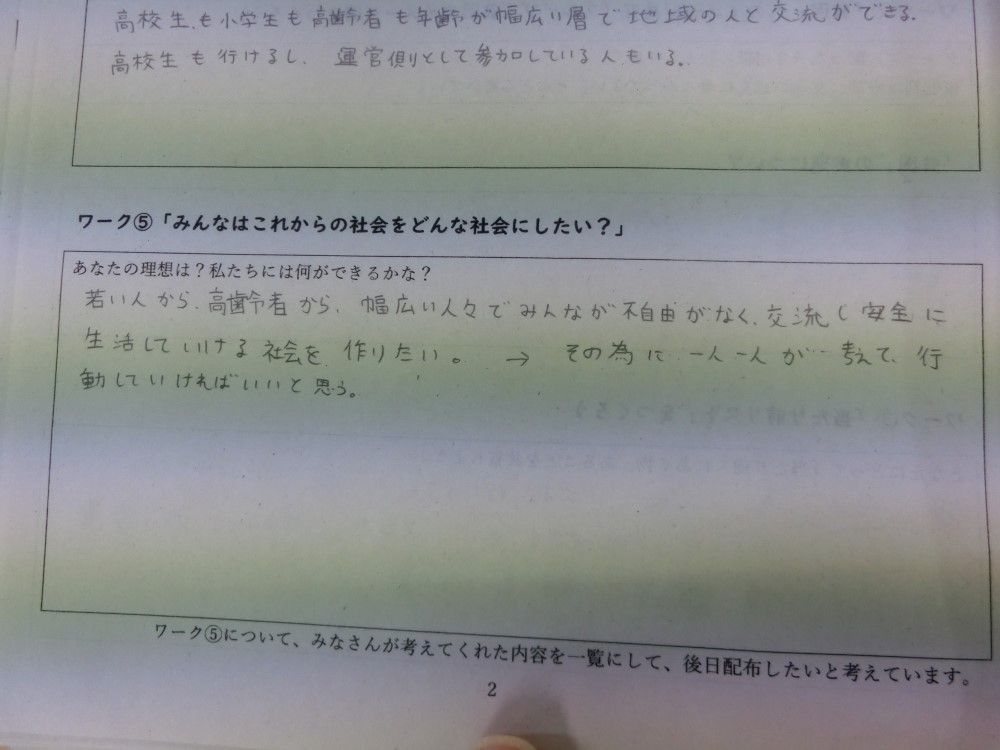 高校生も小学生も高齢者も年齢が幅広い層で地域の人と交流ができる。
高校生も行けるし、運営側として参加している人もいる。
ワーク⑤「みんなはこれからの社会をどんな社会にしたい？」
あなたの理想は？私たちには何ができるかな？
若い人から、高齢者から、幅広い人々でみんなが不自由がなく、交流し安全に
生活していける社会を作りたい。→その為に一人一人が考えて、行
動していければいいと思う。
ワーク⑤について、みなさんが考えてくれた内容を一覧にして、後日配布したいと考えています。
2